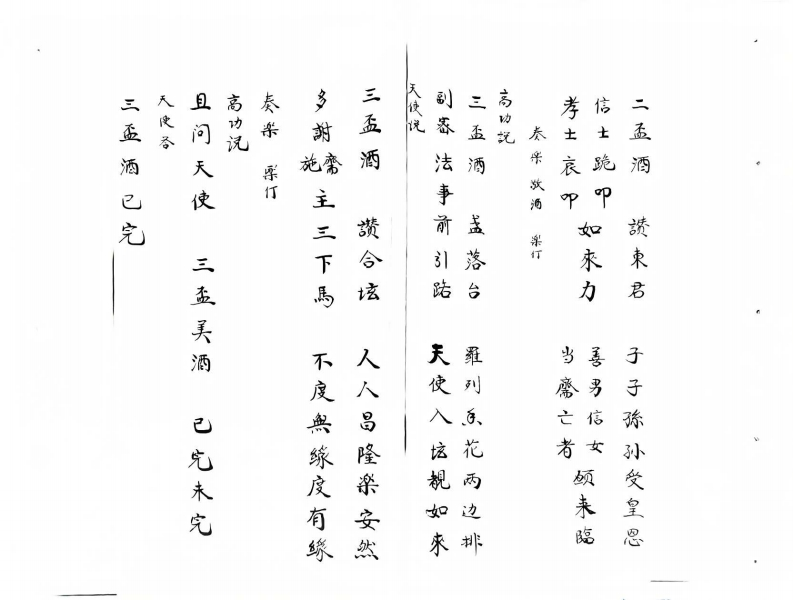 二盃酒 讚東君 子子孫孫受皇恩
信士跪叩 善男信女
孝士哀叩 如來力 当齋亡者 願来臨
奏楽 敬酒 楽仃
高功説
三盃酒 盏落台 羅列香花両边排
副斋法事前引路 天使入坛親如來
天使说
三盃酒 讚合坛 人人昌隆楽安然
多謝施齋主三下馬 不度無緣度有緣
奏楽 楽仃
高功说
且问天使 三盃美酒 已完未完
天使答
三盃酒已完